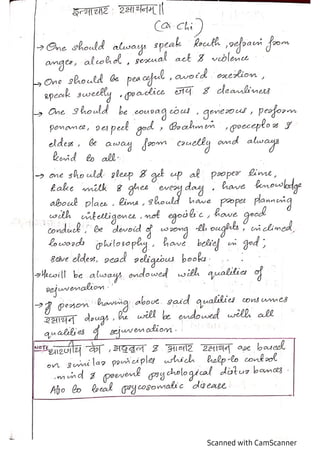 आचार रसायनम् ॥
(Ca Chi)
→ One should always speak truth, refrain from
anger, alcohol, sexual act & violence
→ One should be peaceful, avoid exertion,
speak sweetly, practice जप & cleanliness
→ One should be couragious, generous, perform
penance, respect god, Brahmin, preceptors &
elder, be away from cruelty and always
kind to all.
→ One should sleep & get up at proper time,
take milk & ghee everyday, have knowledge
about place, time, should have proper planning
with intelligence, not egoitic, have good
conduct, be devoid of wrong thoughts, inclined
towards philosophy, have belief in god,
elders, read religious books.
→ He will be always endowed with qualities of
rejuvenation.
→ If person having above said qualities consumes
रसायन drugs, he will be endowed with all
qualities of rejuvenation.
NOTE धारणीय वेग, सद्वृत्त & आचार रसायन are based
on similar principles which help to control
mind & prevent psychological distubances.
Also to treat psycosomatic disease
Scanned with CamScanner